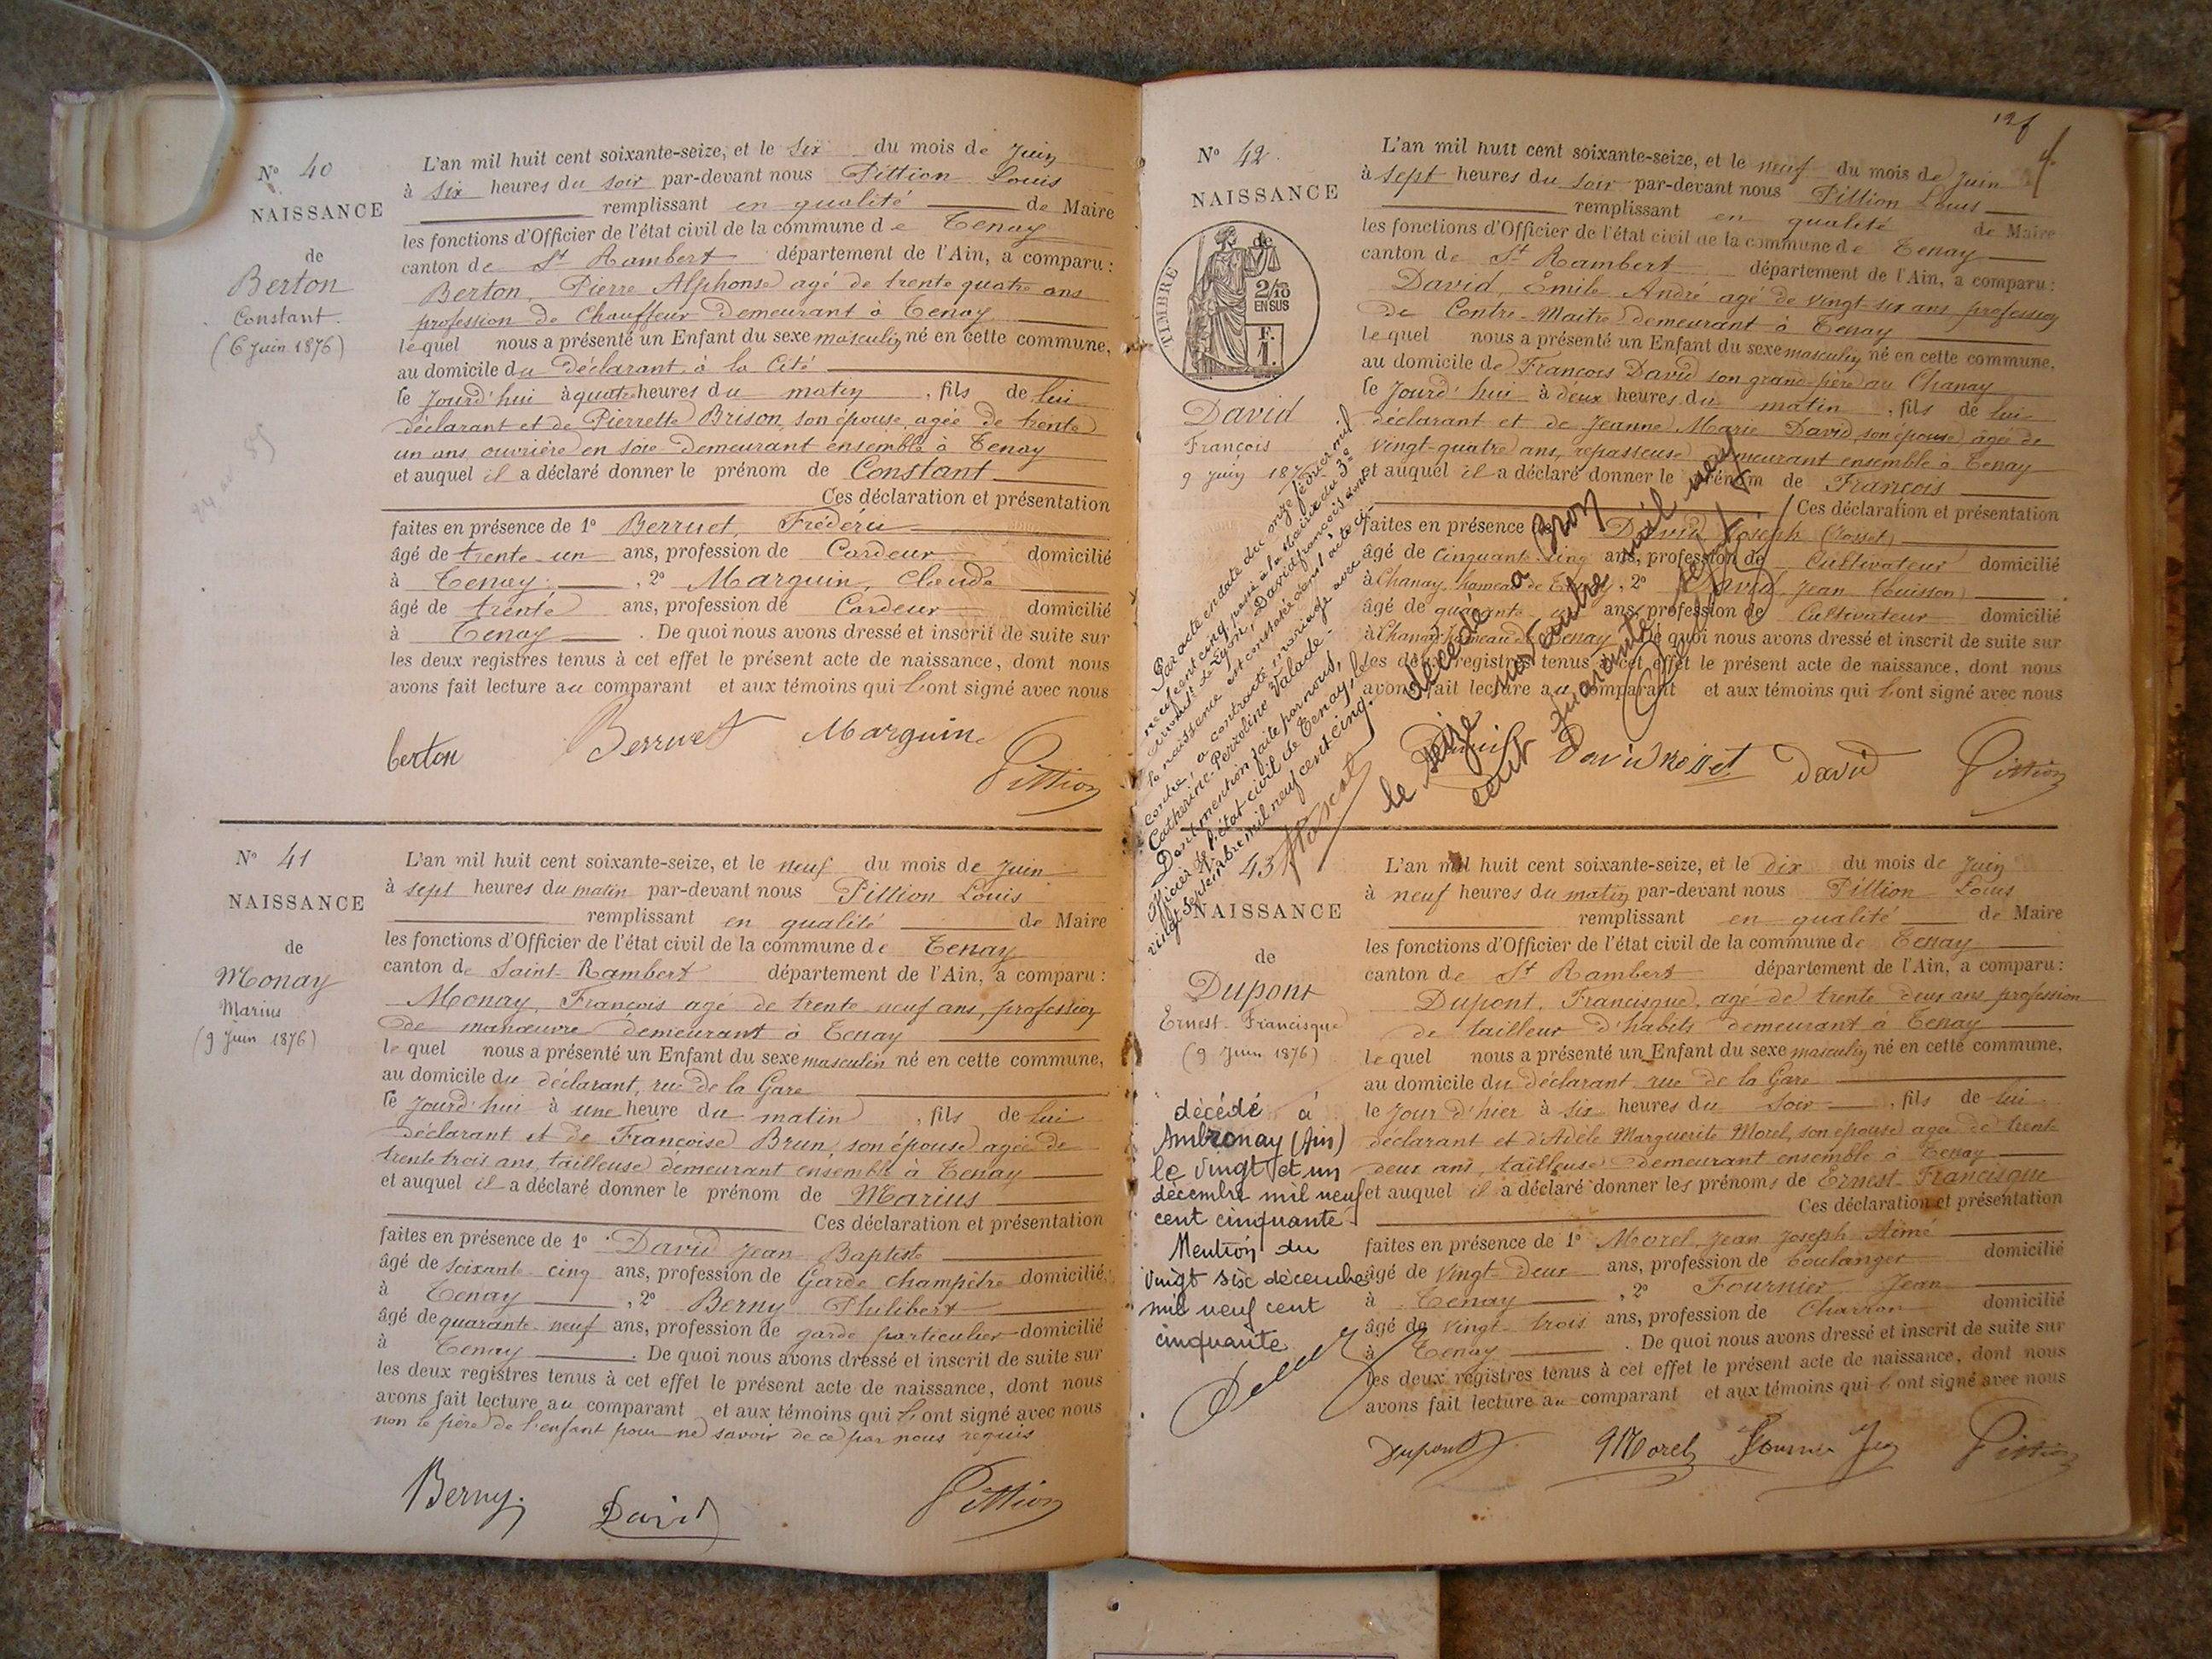 N° 40
NAISSANCE
de
Berton
Constant
(6 Juin 1876)
L'an mil huit cent soixante-seize, et le six du mois de Juin
à six heures du soir par-devant nous Pittion Louis
remplissant en qualité de Maire
les fonctions d'Officier de l'état civil de la commune de Tenay
canton de St Rambert département de l'Ain, a comparu :
Berton, Pierre Alphonse agé de trente quatre ans
profession de Chauffeur demeurant à Tenay
lequel nous a présenté un Enfant du sexe masculin né en cette commune,
au domicile du déclarant à la Cité
le jourd'hui à quatre heures du matin, fils de lui
déclarant et de Pierrette Brison, son épouse, agée de trente
un ans ouvrière en soie demeurant ensemble à Tenay
et auquel il a déclaré donner le prénom de Constant
Ces déclaration et présentation
faites en présence de 1° Berruet, Frédéric
âgé de trente un ans, profession de Cardeur domicilié
à Tenay, 2° Marguin, Claude
âgé de trente ans, profession de Cardeur domicilié
à Tenay. De quoi nous avons dressé et inscrit de suite sur
les deux registres tenus à cet effet le présent acte de naissance, dont nous
avons fait lecture au comparant et aux témoins qui l'ont signé avec nous
berton Berruet Marguin Pittion
N° 41
NAISSANCE
de
Monay
Marius
(9 Juin 1876)
L'an mil huit cent soixante-seize, et le neuf du mois de Juin
à sept heures du matin par-devant nous Pittion Louis
remplissant en qualité de Maire
les fonctions d'Officier de l'état civil de la commune de Tenay
canton de Saint-Rambert département de l'Ain, a comparu :
Monay, François agé de trente neuf ans, profession
de manœuvre demeurant à Tenay
lequel nous a présenté un Enfant du sexe masculin né en cette commune,
au domicile du déclarant, rue de la Gare
le jourd'hui à une heure du matin, fils de lui
déclarant et de Françoise Brun, son épouse agée de
trente trois ans, tailleuse demeurant ensemble à Tenay
et auquel il a déclaré donner le prénom de Marius
Ces déclaration et présentation
faites en présence de 1° David Jean Baptiste
âgé de soixante-cinq ans, profession de Garde champêtre domicilié
à Tenay, 2° Berny Philibert
âgé de quarante-neuf ans, profession de garde particulier domicilié
à Tenay. De quoi nous avons dressé et inscrit de suite sur
les deux registres tenus à cet effet le présent acte de naissance, dont nous
avons fait lecture au comparant et aux témoins qui l'ont signé avec nous
non le père de l'enfant pour ne savoir de ce par nous requis
Berny David Pittion
N° 42
NAISSANCE
TIMBRE
2/10
EN SUS
F.
1.
de
David
François
9 Juin
L'an mil huit cent soixante-seize, et le neuf du mois de Juin
à sept heures du soir par-devant nous Pittion Louis
remplissant en qualité de Maire
les fonctions d'Officier de l'état civil de la commune de Tenay
canton de St Rambert département de l'Ain, a comparu :
David, Émile André agé de vingt-six ans profession
de Contre-Maitre demeurant à Tenay
lequel nous a présenté un Enfant du sexe masculin né en cette commune,
au domicile de François David son grand-père au Chanay
le jourd'hui à deux heures du matin, fils de lui
déclarant et de Jeanne Marie David, son épouse âgée de
vingt-quatre ans, repasseuse demeurant ensemble à Tenay
et auquel il a déclaré donner le prénom de François
Ces déclaration et présentation
faites en présence de David Joseph (Rosset)
âgé de cinquante cinq ans, profession de Cultivateur domicilié
à Chanay, hameau de Tenay, 2° David Jean
âgé de quarante ans, profession de Cultivateur domicilié
à Chanay hameau de Tenay De quoi nous avons dressé et inscrit de suite sur
les deux registres tenus à cet effet le présent acte de naissance, dont nous
avons fait lecture au comparant et aux témoins qui l'ont signé avec nous
David David Rosset David Pittion
Par acte en date du onze février mil
neuf cent cinq passé à la Mairie du 3e
arrondt. de Lyon, David françois dont
la naissance est constatée dans l'acte ci-
contre, a contracté mariage avec
Catherine-Perroline Valade.
Dont mention faite par nous,
officier de l'état civil de Tenay, le
vingt Septembre mil neuf cent cinq.
décédé à Bron
le seize novembre mil neuf
cent quarante
43
NAISSANCE
de
Dupont
Ernest-Francisque
(9 Juin 1876)
décédé à
Ambronay (Ain)
le vingt et un
décembre mil neuf
cent cinquante
Mention du
vingt six décembre
mil neuf cent
cinquante
L'an mil huit cent soixante-seize, et le dix du mois de Juin
à neuf heures du matin par-devant nous Pittion Louis
remplissant en qualité de Maire
les fonctions d'Officier de l'état civil de la commune de Tenay
canton de St Rambert département de l'Ain, a comparu :
Dupont, Francisque, agé de trente deux ans profession
de tailleur d'habits demeurant à Tenay
lequel nous a présenté un Enfant du sexe masculin né en cette commune,
au domicile du déclarant rue de la Gare
le jour d'hier à six heures du soir, fils de lui
déclarant et d'Adèle Marguerite Morel, son épouse agée de trente
deux ans, tailleuse demeurant ensemble à Tenay
et auquel il a déclaré donner les prénoms de Ernest-Francisque
Ces déclaration et présentation
faites en présence de 1° Morel, Jean Joseph Aimé
âgé de vingt-deux ans, profession de boulanger domicilié
à Tenay, 2° Fournier Jean
âgé de vingt-trois ans, profession de Charron domicilié
à Tenay. De quoi nous avons dressé et inscrit de suite sur
les deux registres tenus à cet effet le présent acte de naissance, dont nous
avons fait lecture au comparant et aux témoins qui l'ont signé avec nous
Dupont Morel Pittion